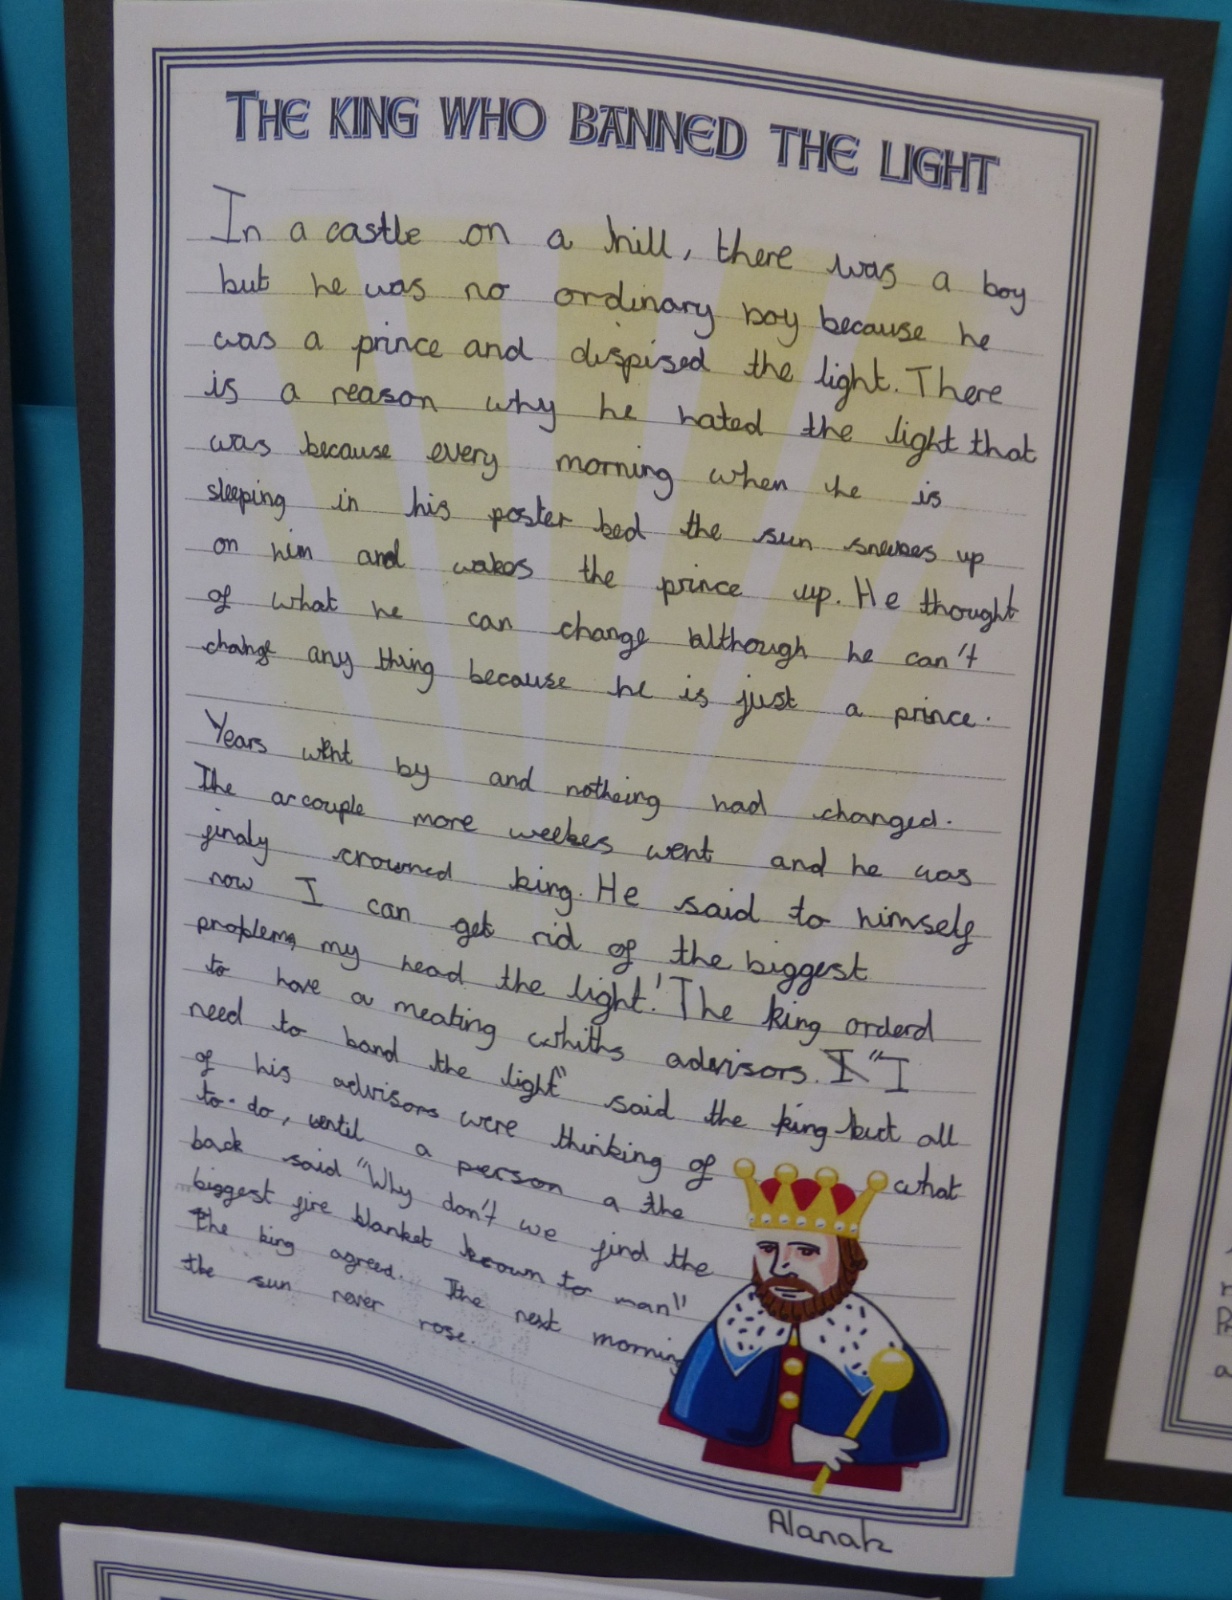 THE KING WHO BANNED THE LIGHT
In a castle on a hill, there was a boy
but he was no ordinary boy because he
was a prince and dispised the light. There
is a reason why he hated the light that
was because every morning when he is
sleeping in his poster bed the sun snekes up
on him and wakes the prince up. He thought
of what he can change although he can't
change any thing because he is just a prince.
Years went by and notheing had changed.
The acouple more weekes went and he was
finaly crowned king. He said to himself
now I can get rid of the biggest
problem, my head the light!' The king orderd
to have a meating whiths advisors. I "I
need to band the light" said the king but all
of his advisors were thinking of what
to do, until a person a the
back said "Why don't we find the
biggest fire blanket known to man"
The king agreed. The next morning
the sun never rose.
Alanah